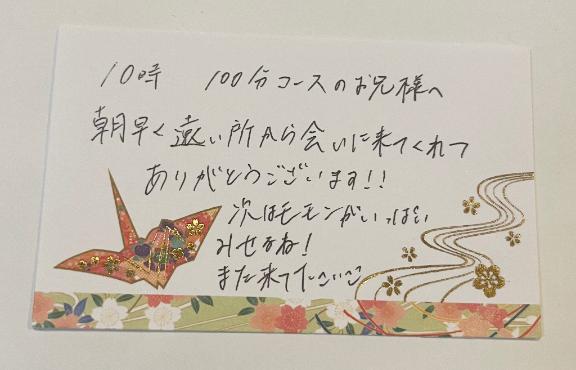 10時 100分コースのお兄様へ
朝早く遠い所から会いに来てくれて
ありがとうございます!!
次はモモンがいっぱい
みせるね!
また来てたこいこ